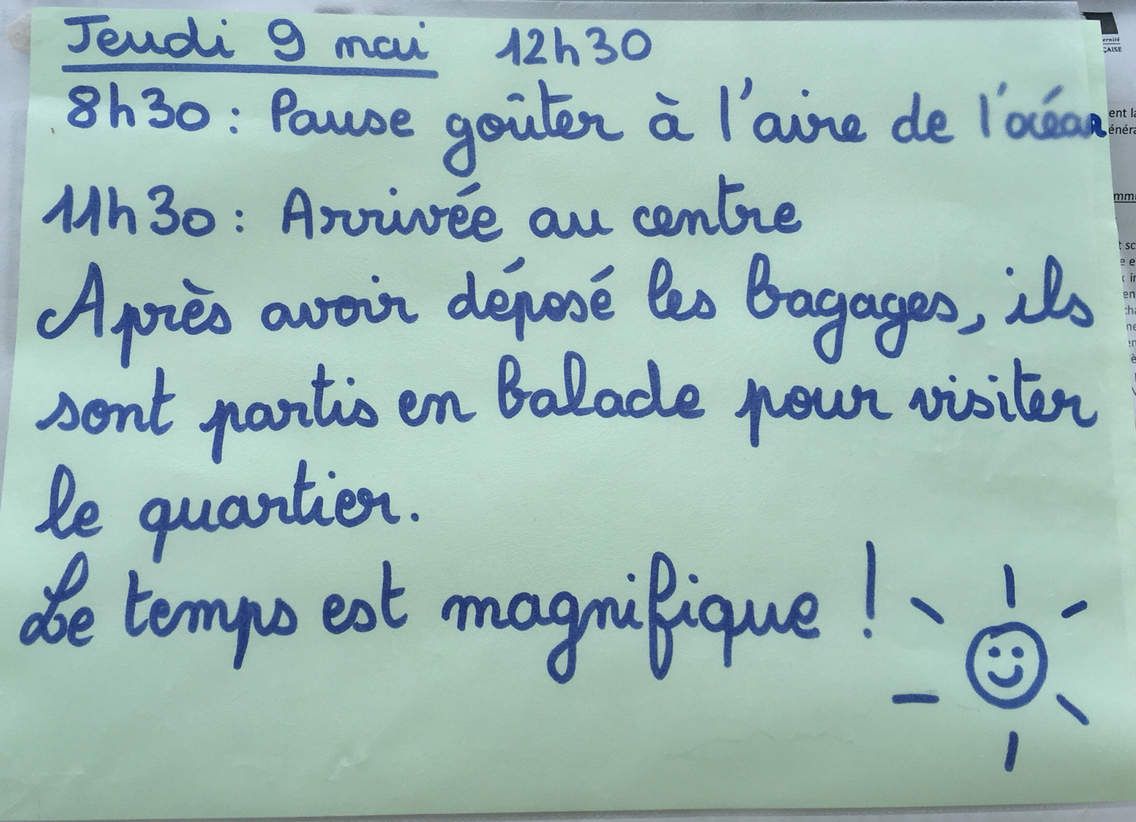 Jeudi 9 mai 12h30
8h30 : Pause goûter à l'aire de l'océan
11h30 : Arrivée au centre
Après avoir déposé les bagages, ils
sont partis en balade pour visiter
le quartier.
Le temps est magnifique !